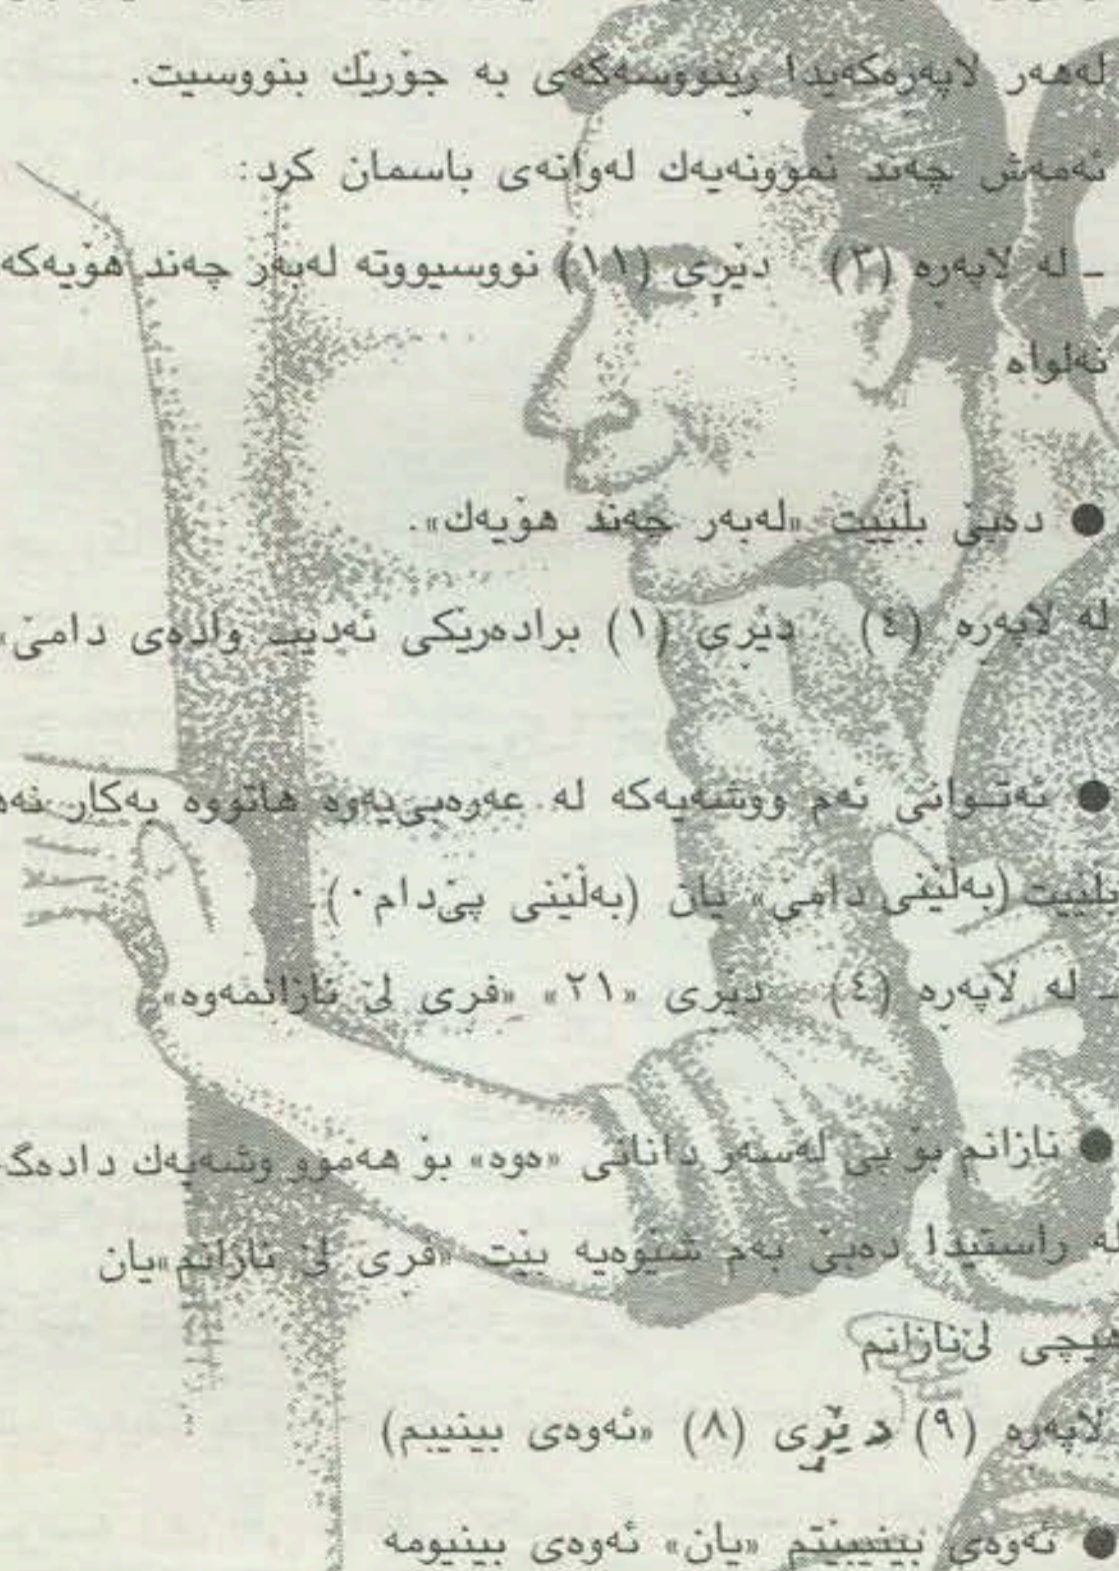 لەهەر لاپەرەکەیدا رێنووسەکەی بە جۆرێك بنووسیت.
ئەمەش چەند نموونەیەك لەوانەی باسمان کرد:
ـ لە لاپەرە (٣) دێڕی (١١) نووسیووتە لەبەر چەند هۆیەکە
نەلواە
● دەبێ بڵێیت «لەبەر چەند هۆیەك».
لە لاپەرە (٤) دێڕی (١) برادەرێکی ئەدیب وادەی دامێ»
● نەتـوانی ئەم ووشەیەکە لە عەرەبی‌یەوە هاتووە بەکار نەه
بڵێیت (بەڵێنی دامێ» یان (بەڵێنی پێ‌دام٠)
ـ لە لاپەرە (٤) دێری «٢١» «فری لێ نازانمەوە»
● نازانم بۆ پێ لەسەر دانانی «ەوە» بۆ هەموو وشەیەك دادەگ
لە راستیدا دەبێ بەم شێوەیە بێت «فری لێ نازانم»یان
هیچی لێ‌نازانم
لاپەرە (٩) دێڕی (٨) «ئەوەی بینیبم)
● ئەوەی بینیبێتم «یان» ئەوەی بینیومە